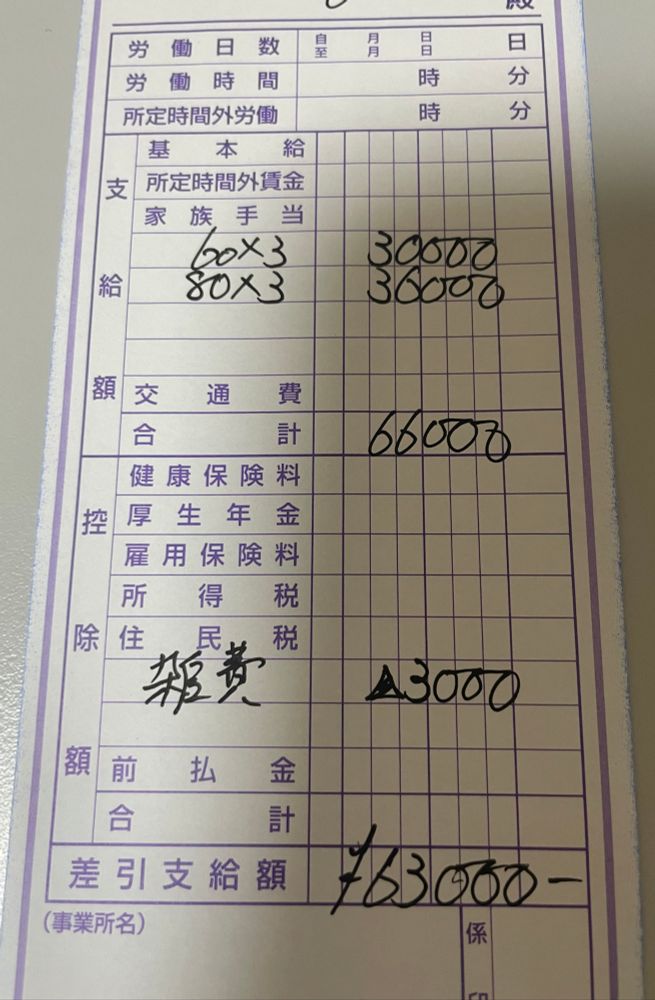 殿
労働日数 自 月 日 至 月 日 日
労働時間 時 分
所定時間外労働 時 分
支給額
基本給
所定時間外賃金
家族手当
60×3 30000
80×3 36000
交通費
合計 66000
控除額
健康保険料
厚生年金
雇用保険料
所得税
住民税
雑費 ▲3000
前払金
合計
差引支給額 ¥63000-
(事業所名)
係印